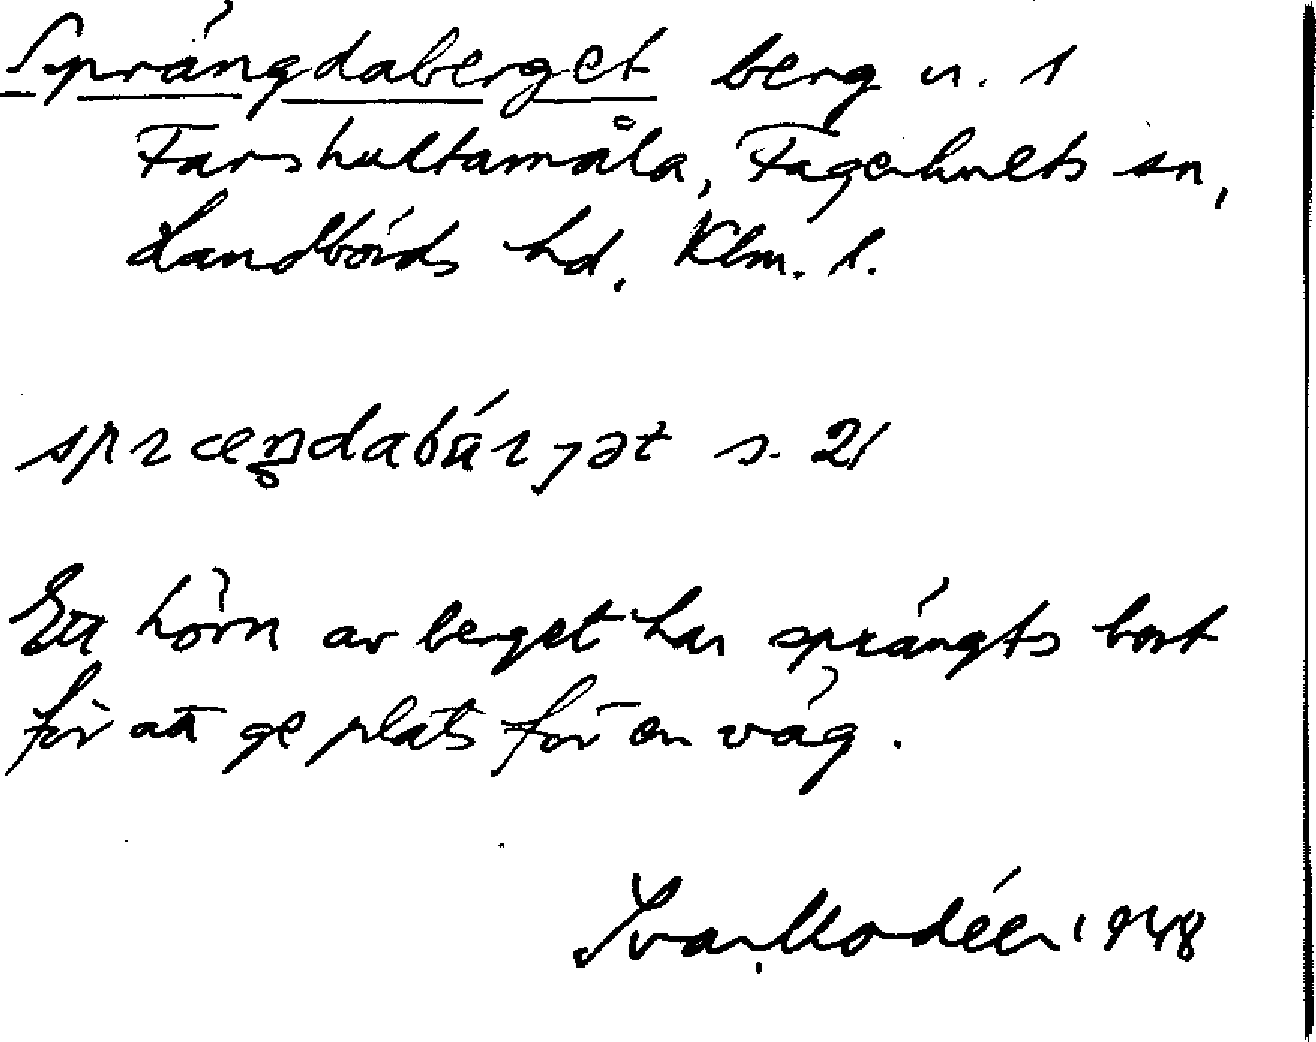 Sprängdaberget berg n. 1
Farshultamåla, Fagerhults sn,
Handbörds hd. Klm. l.
Ett hörn av berget har sprängts bort
för att ge plats för en väg.
Ivar Modéer 1948